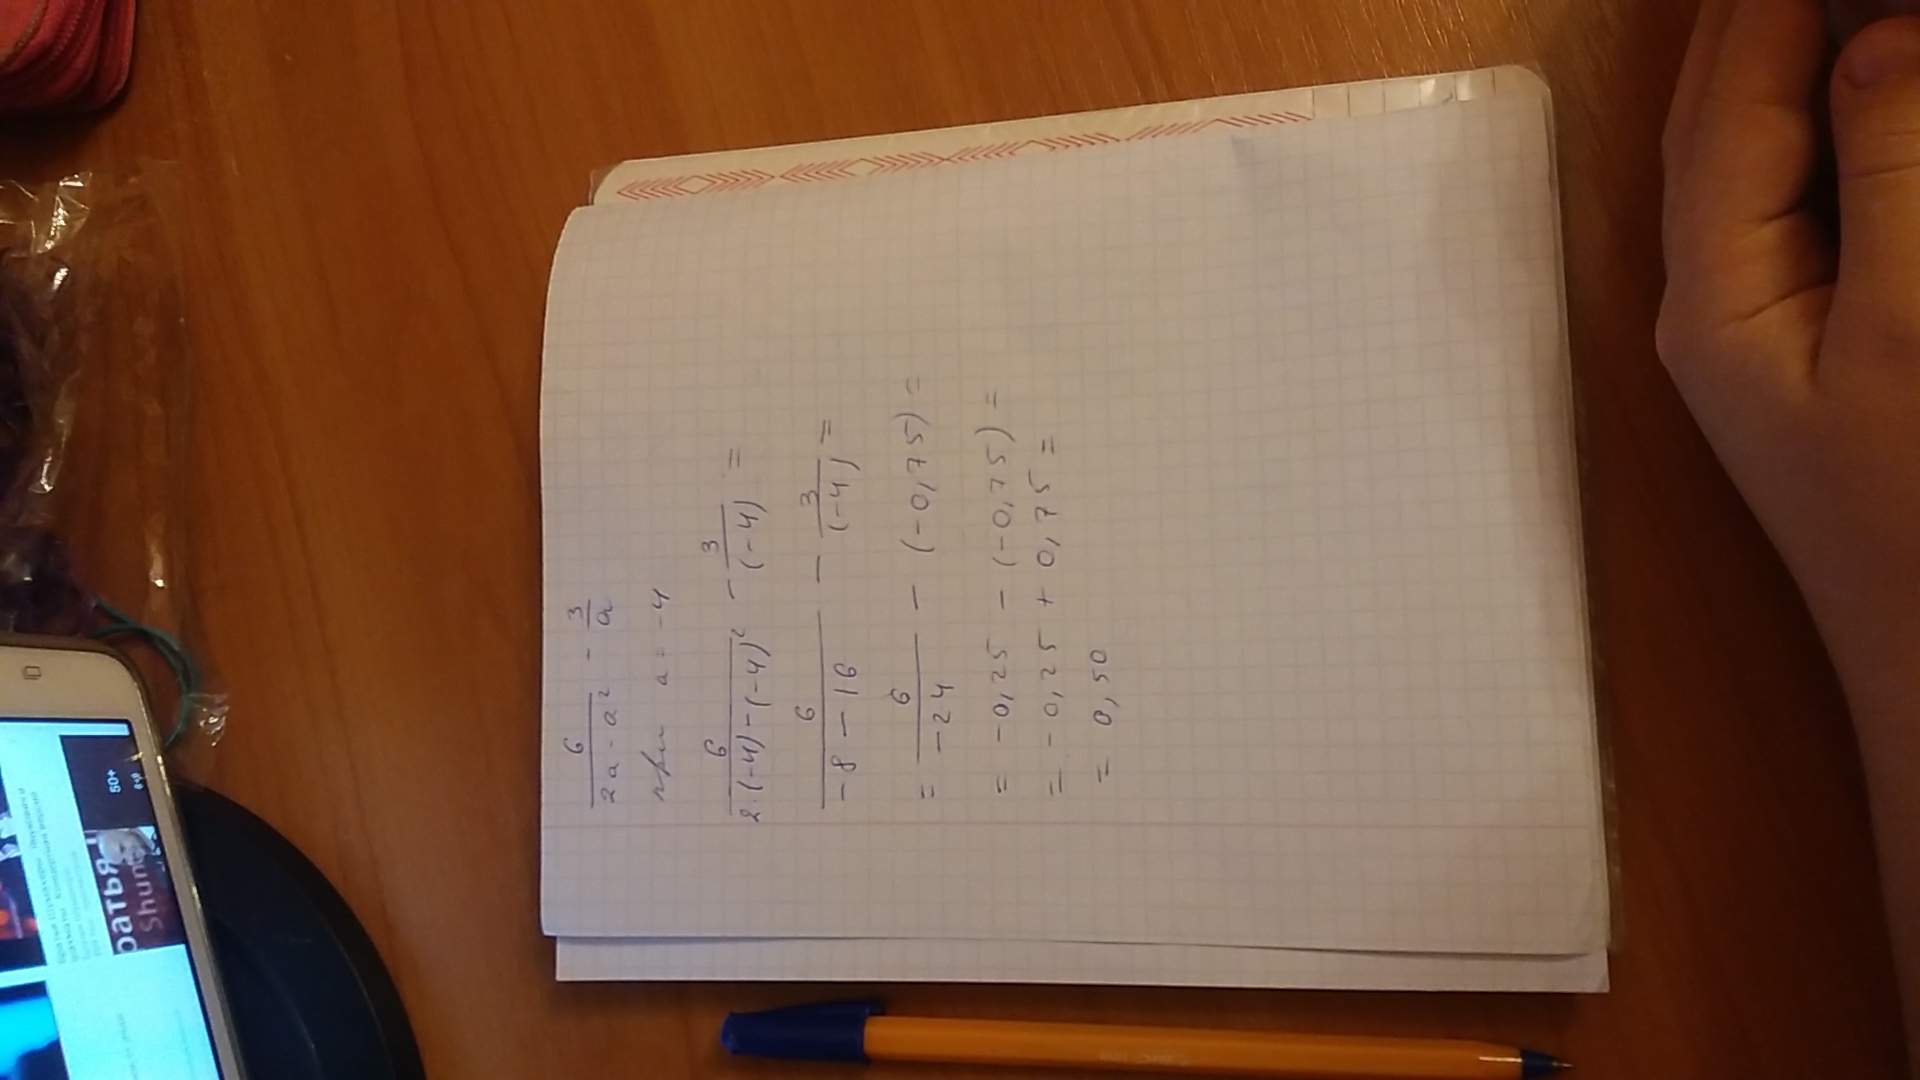 6/(2a - a²) - 3/a
при a = -4
6/(2·(-4)-(-4)²) - 3/(-4) =
6/(-8 - 16) - 3/(-4) =
= 6/(-24) - (-0,75) =
= -0,25 - (-0,75) =
= -0,25 + 0,75 =
= 0,50
50+
ратья
Shum